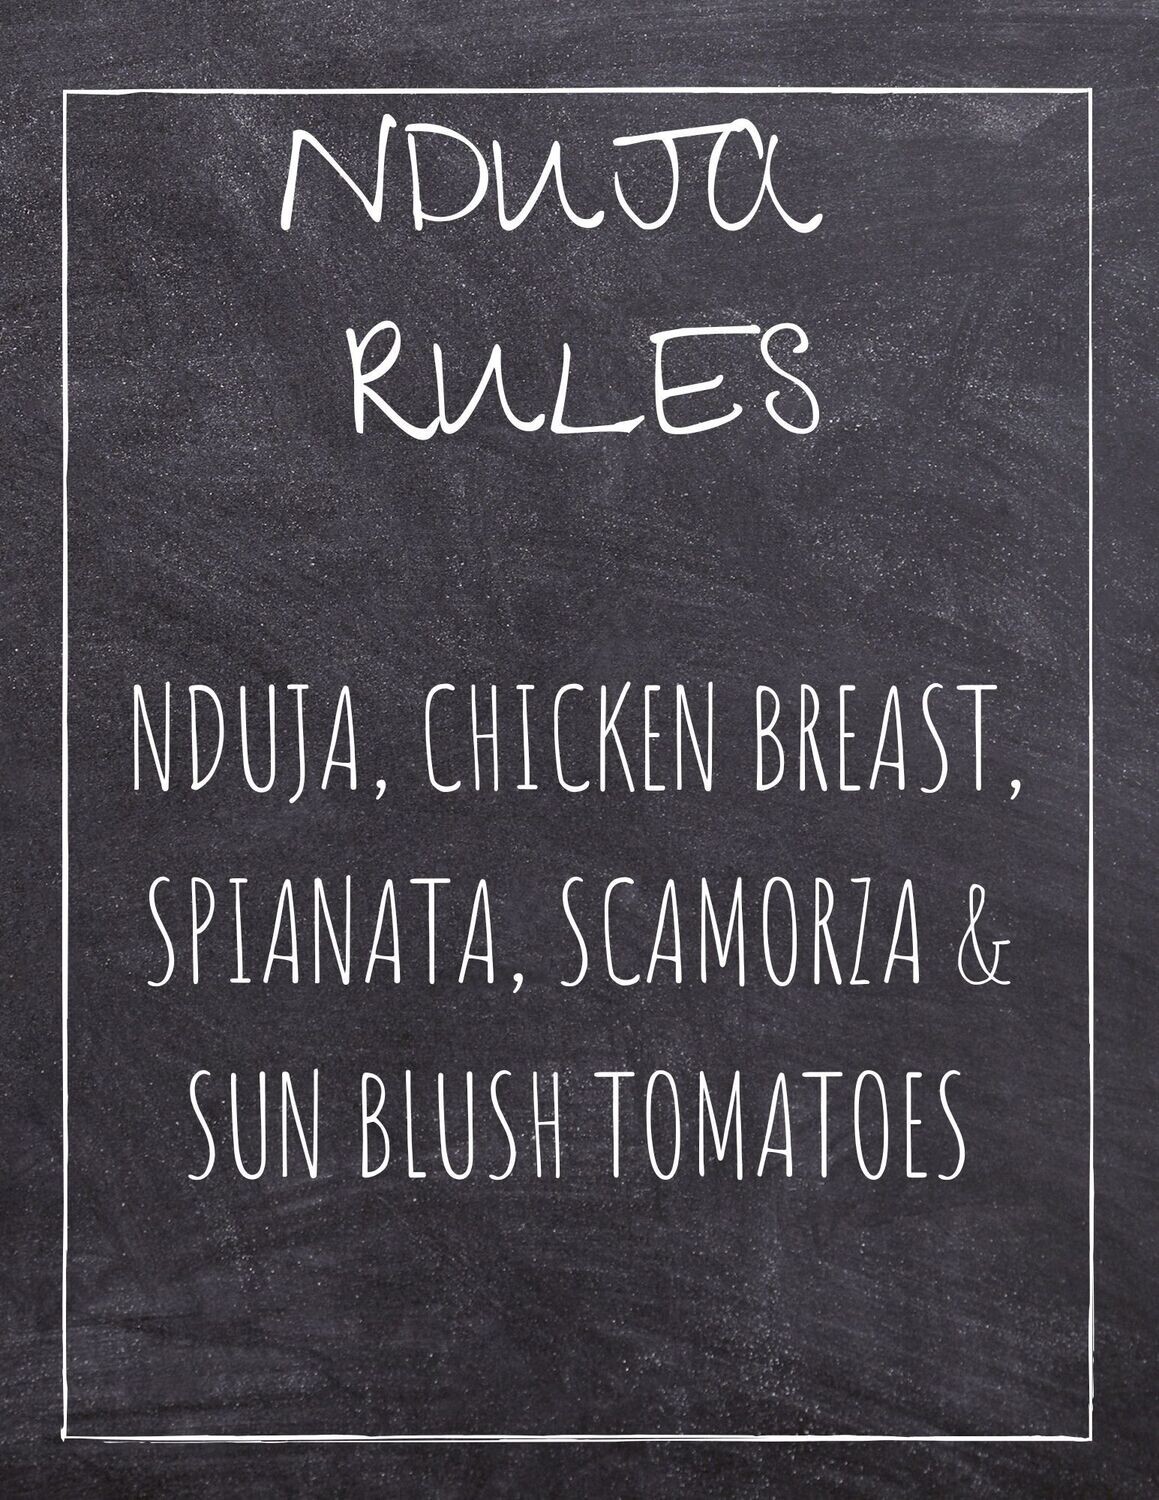 NDUJA
RULES
NDUJA, CHICKEN BREAST,
SPIANATA, SCAMORZA &
SUN BLUSH TOMATOES